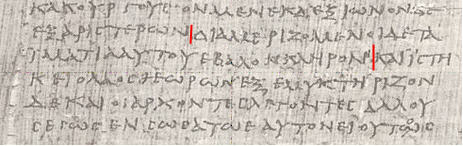 ΚΑΚΟΥΡΓΟΥϹΟΝΜΕΝΕΚΔΕΞΙΩΝΟΝΔΕ
ΕΞΑΡΙϹΤΕΡΩΝΔΙΑΜΕΡΙΖΟΜΕΝΟΙΔΕΤΑ
ΙΜΑΤΙΑΑΥΤΟΥΕΒΑΛΟΝΚΛΗΡΟΝΚΑΙΙϹΤΗ
ΚΕΙΟΛΑΟϹΘΕΩΡΩΝΕΞΕΜΥΚΤΗΡΙΖΟΝ
ΔΕΚΑΙΟΙΑΡΧΟΝΤΕϹΛΕΓΟΝΤΕϹΑΛΛΟΥ
ϹΕϹΩϹΕΝϹΩϹΑΤΩΕΑΥΤΟΝΕΙΟΥΤΟϹ